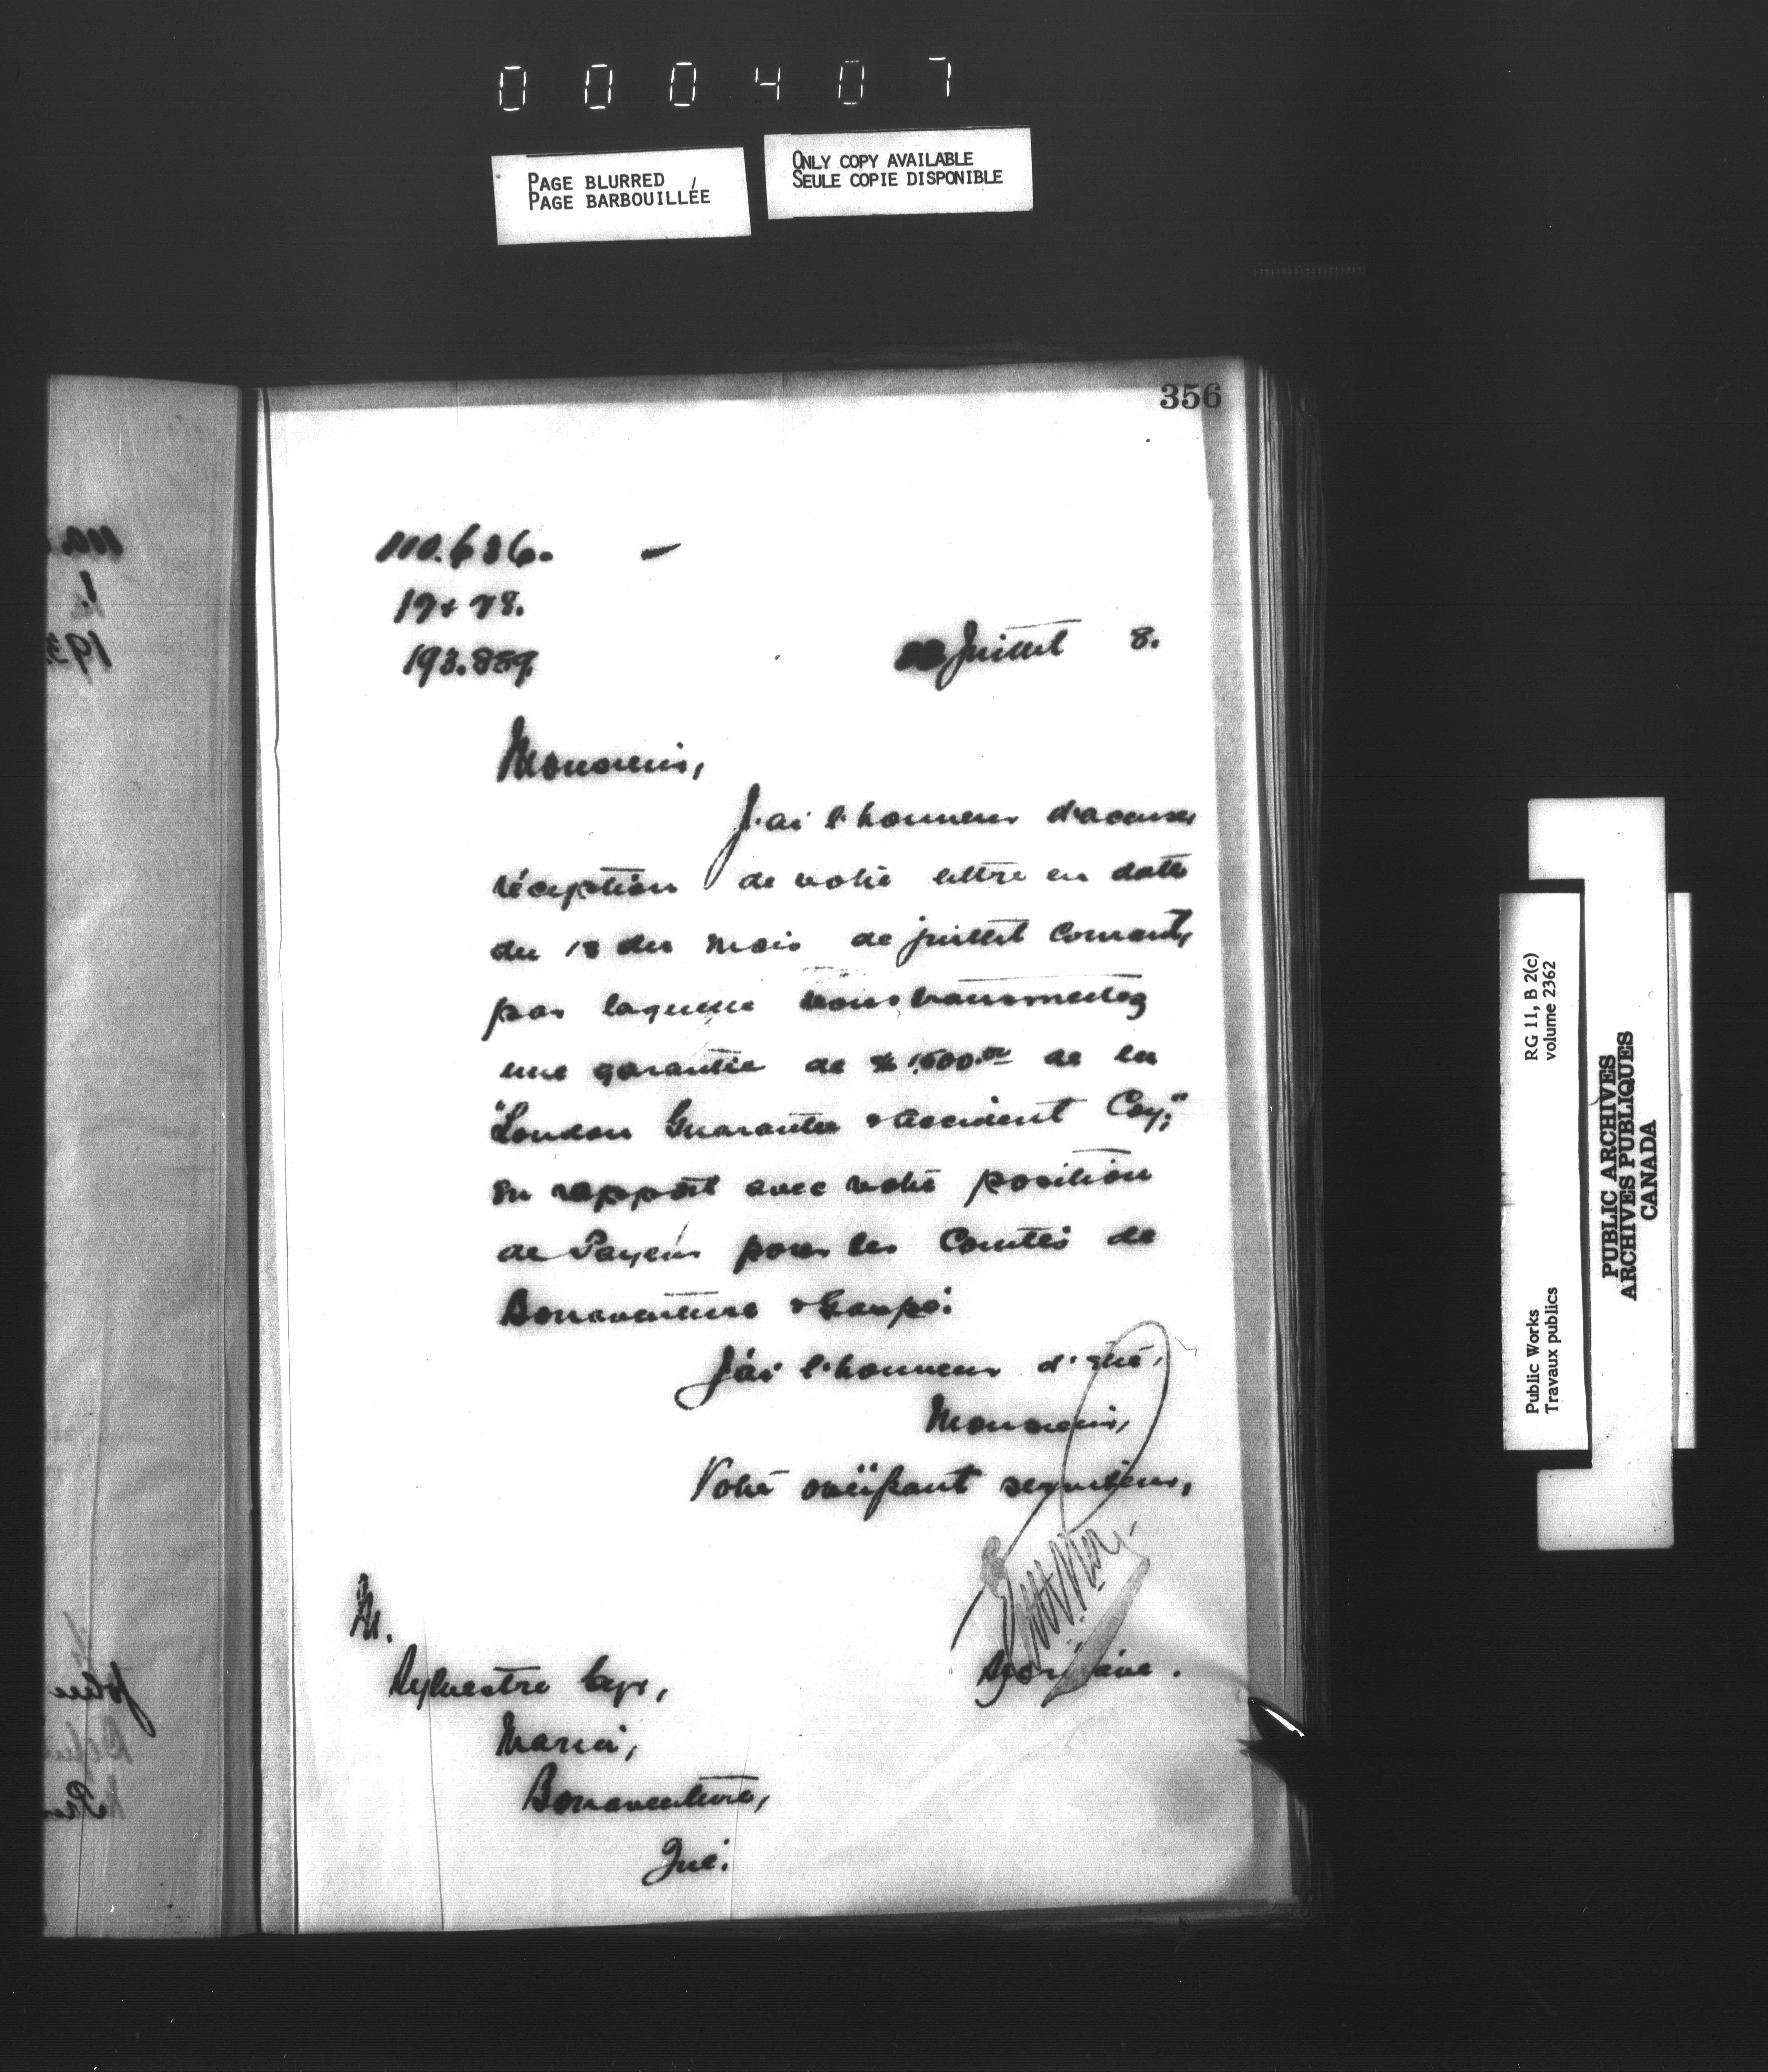 000407
PAGE BLURRED
PAGE BARBOUILLÉE
ONLY COPY AVAILABLE
SEULE COPIE DISPONIBLE
356
193.889.
Juillet 8.
Monsieur,
J'ai l'honneur d'accuser
réception de votre lettre en date
du 18 du mois de juillet courant,
par laquelle vous transmettez
une garantie de $1,500.00 de la
"London Guarantee & Accident Coy,"
en rapport avec votre position
de Payeur pour les Comtés de
Bonaventure & Gaspé.
J'ai l'honneur d'être,
Monsieur,
Votre obéissant serviteur,
Secrétaire.
M.
Sylvestre Cyr,
Maria,
Bonaventure,
Qué.
Public Works
Travaux publics
RG 11, B 2(c)
volume 2362
PUBLIC ARCHIVES
ARCHIVES PUBLIQUES
CANADA